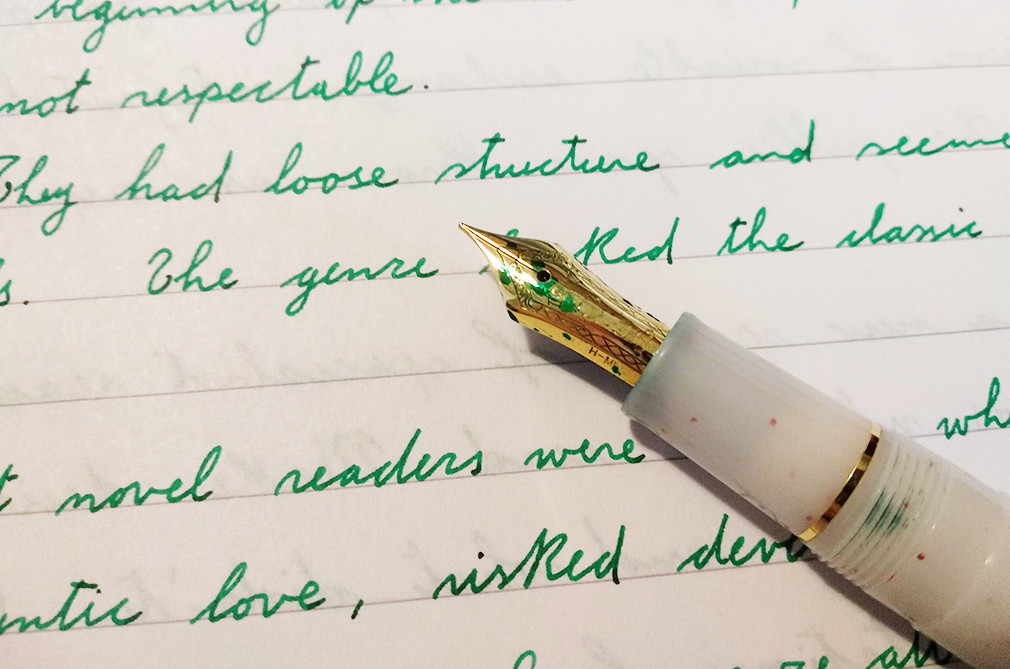 beginning of the
not respectable.
They had loose structure and seeme
s. The genre l ked the classic
H-M
t novel readers were wh
ntic love, risked deve